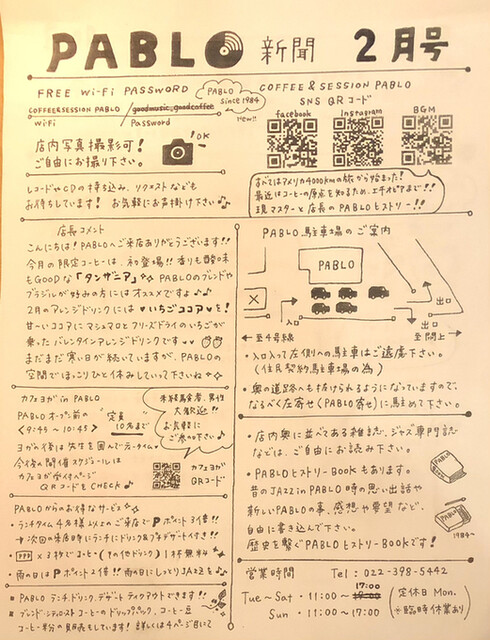 PABLO 新聞 2月号
FREE Wi-Fi PASSWORD
COFFEE&SESSION PABLO / goodmusic_goodcoffee
Wi-Fi Password
PABLO
since 1984
COFFEE & SESSION PABLO
SNS QRコード
facebook Instagram BGM
New!!
店内写真撮影可!
ご自由にお撮り下さい。
OK
レコードやCDの持ち込み、リクエストなども
お待ちしています! お気軽にお声掛け下さい♪
すべてはアメリカ4000kmの旅から始まった!
最近はコーヒーの原点を知るため、エチオピアまで!!
現マスターと店長のPABLOヒストリー!!
店長コメント
こんにちは!PABLOへご来店ありがとうございます!!
今月の限定コーヒーは、初登場!!香りも酸味
もGOODな「タンザニア」 PABLOのブレンドや
ブラジルが好みの方にはオススメですよ♪
2月のアレンジドリンクには♥いちごココア♥を!
甘〜いココアにマシュマロとフリーズドライのいちごが
乗ったバレンタインアレンジドリンクです
まだまだ寒い日が続いていますが、PABLOの
空間でほっこりひと休みしていって下さいね
PABLO駐車場のご案内
PABLO
入口
出口
出口
←至4号線
→至閖上
・入口入って左側への駐車はご遠慮下さい。
(住民契約駐車場の為)
・奥の道路へも抜けられるようになっていますので、
なるべく左寄せ(PABLO寄せ)に駐めて下さい。
カフェヨガ in PABLO
PABLOオープン前の
<9:45〜10:45>
定員
10名まで
未経験者、男性
大歓迎!!
お気軽に
ご参加下さい♪
ヨガの後は先生を囲んでティータイム
今後の開催スケジュールは
カフェヨガ受付ページ
QRコードをCHECK♪
カフェヨガ
QRコード
・店内奥に並べてある雑誌、ジャズ専門誌
などは、ご自由にお読み下さい。
・PABLOヒストリーBOOKもあります。
昔のJAZZ in PABLO時の思い出話や
新しいPABLOの事、感想や要望など、
自由に書き込んで下さい。
歴史を繋ぐPABLOヒストリーBOOKです!
PABLO
PABLO
1984〜
PABLOからのお得なサービス
・ランチタイム4名様以上のご来店でPポイント3倍!!
次回の来店時にランチにドリンク&プチデザート付き!!
×3秒でコーヒー(その他ドリンク)1杯無料
・雨の日はPポイント2倍!! 雨の日にしっとりJAZZを♪
PABLOランチ、ドリンク、デザートテイクアウトできます!!
コーヒー豆
営業時間 Tel: 022-398-5442
Tue〜Sat・11:00〜19:00 17:00
Sun・11:00〜17:00
定休日 Mon.
※臨時休業あり